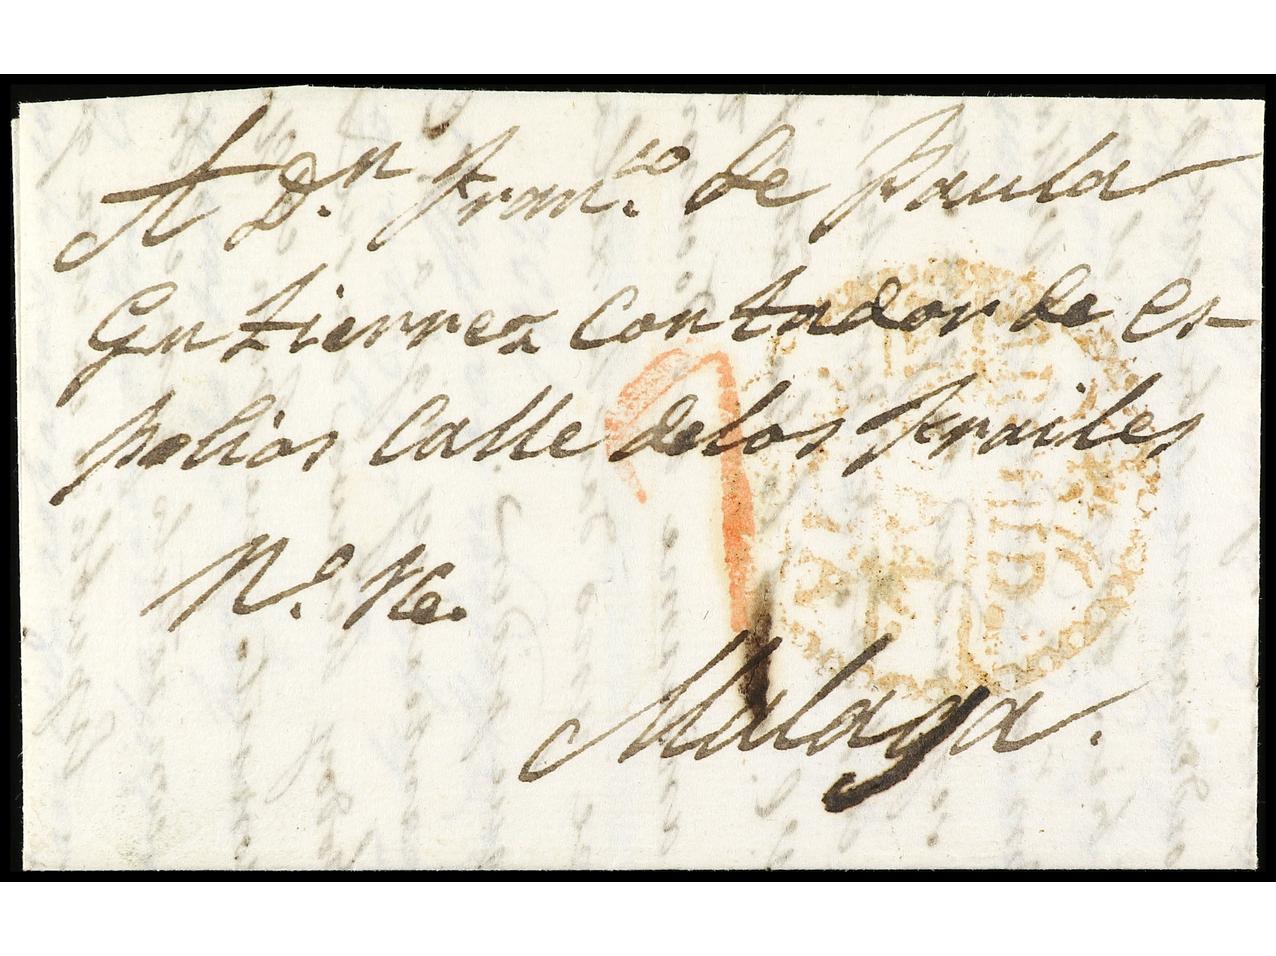 A Dn. Franco. de Paula
Gutierrez Contador de es-
polios Calle de los Frailes
No.
Malaga.